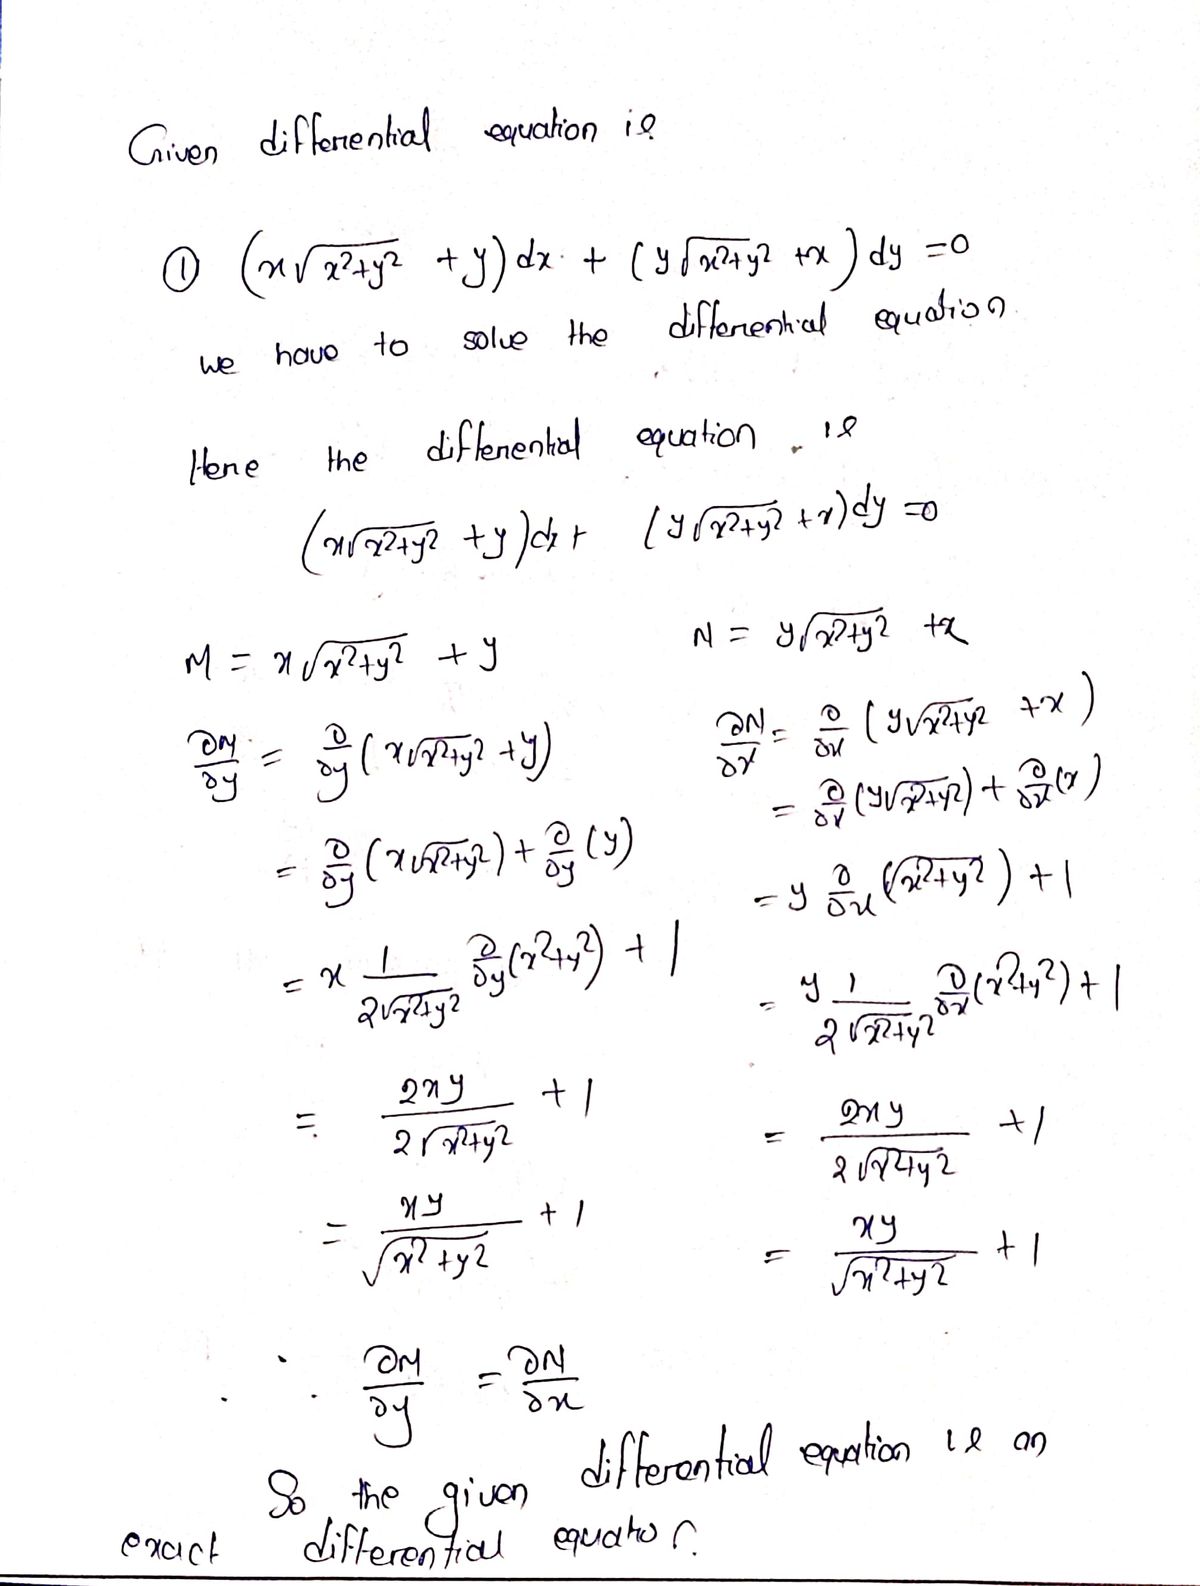 Given differential equation is
① (x√x²+y² + y) dx + (y√x²+y² + x) dy = 0
we have to solve the differential equation.
Here the differential equation is
(x√x²+y² + y) dx + (y√x²+y² + x) dy = 0
M = x√x²+y² + y
N = y√x²+y² + x
∂M/∂y = ∂/∂y (x√x²+y² + y)
∂N/∂x = ∂/∂x (y√x²+y² + x)
= ∂/∂y (x√x²+y²) + ∂/∂y (y)
= ∂/∂x (y√x²+y²) + ∂/∂x (x)
= y ∂/∂x (√x²+y²) + 1
= x 1/2√x²+y² ∂/∂y (x²+y²) + 1
= y 1/2√x²+y² ∂/∂x (x²+y²) + 1
= 2xy/2√x²+y² + 1
= 2xy/2√x²+y² + 1
= xy/√x²+y² + 1
= xy/√x²+y² + 1
∴ ∂M/∂y = ∂N/∂x
So the given differential equation is an
exact differential equation.